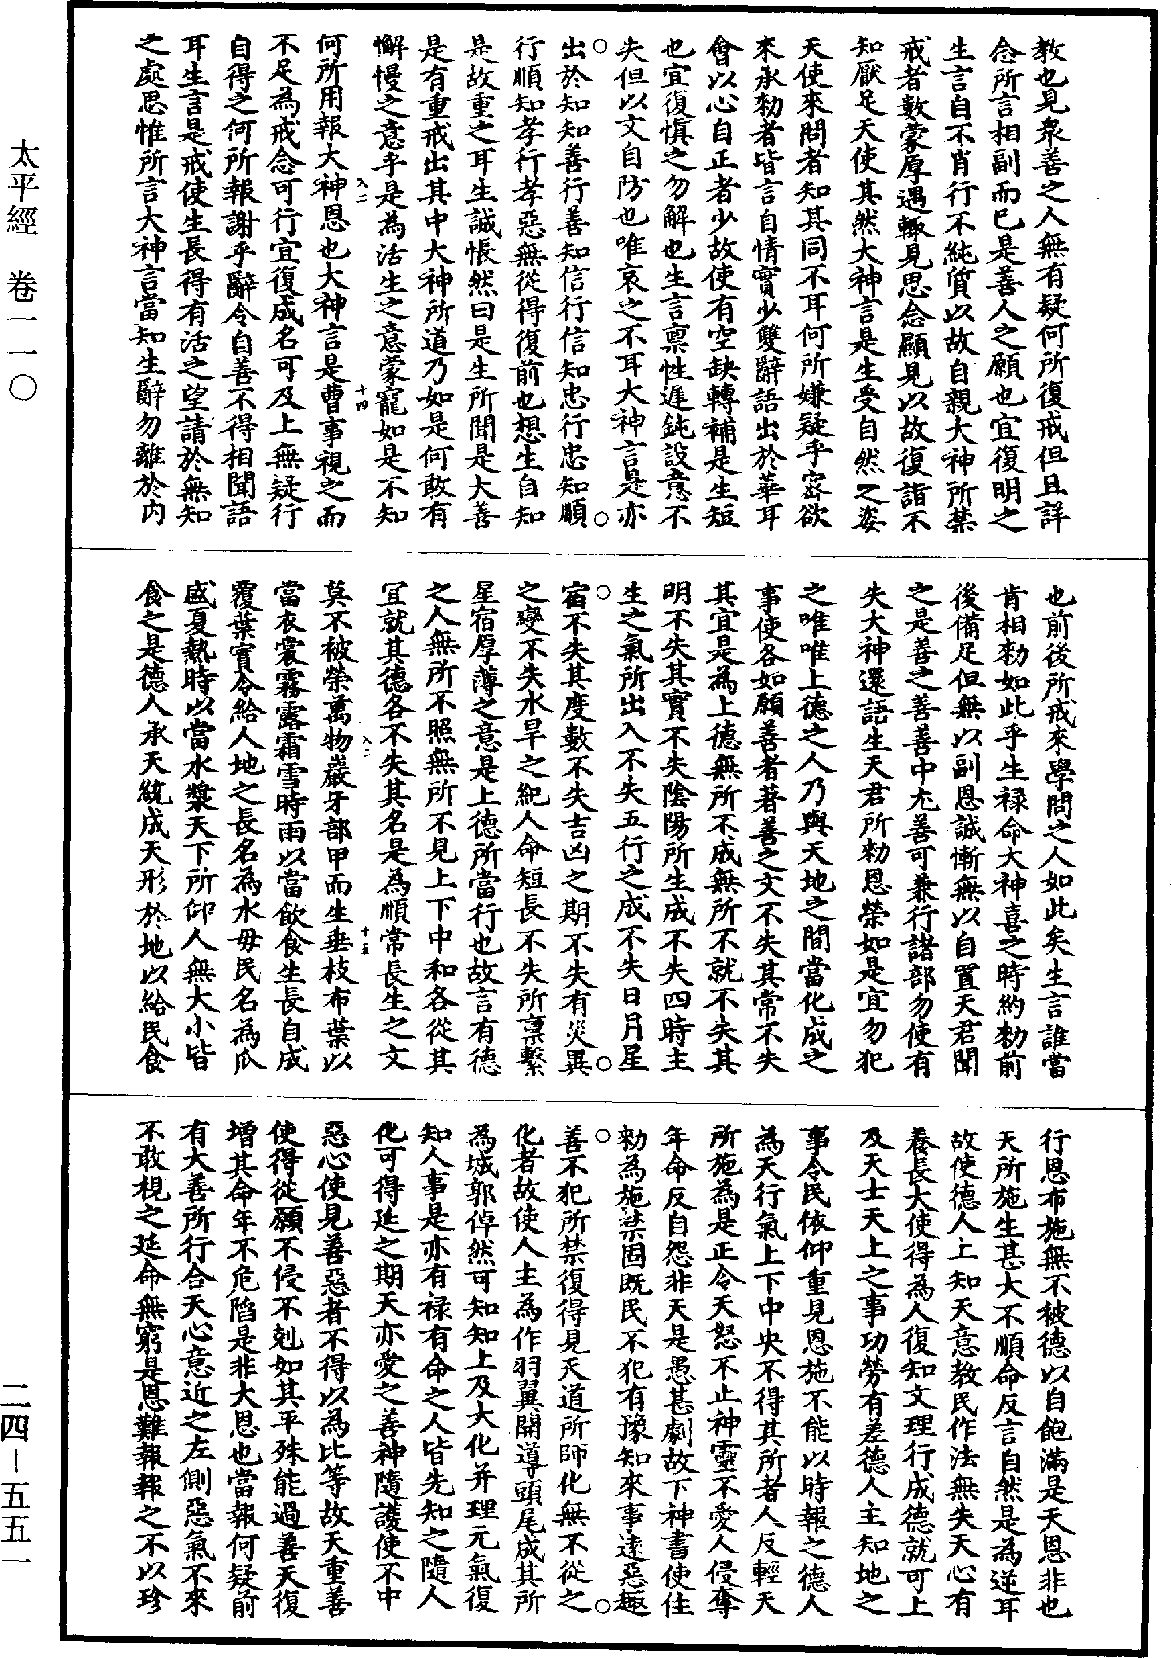 太平經　卷一一〇
教也見衆善之人無有疑何所復戒但且詳
念所言相副而已是善人之願也宜復明之
生言自不肖行不純質以故自親大神所禁
戒者數蒙厚遇輒見思念顯見以故復詣不
知厭足天使其然大神言是生受自然之姿
天使來問者知其同不耳何所嫌疑乎密欲
來承勑者皆言自情實少雙辭語出於華耳
會以心自正者少故使有空缺轉補是生短
也宜復慎之勿解也生言稟性遲鈍設意不
失但以文自防也唯哀之不耳大神言是亦
出於知知善行善知信行信知忠行忠知順
行順知孝行孝惡無從得復前也想生自知
是故重之耳生誠悵然曰是生所聞是大善
是有重戒出其中大神所道乃如是何敢有
懈慢之意乎是為活生之意蒙寵如是不知
入二
十四
何所用報大神恩也大神言是曹事視之而
不足為戒念可行宜復成名可及上無疑行
自得之何所報謝乎辭令自善不得相聞語
耳生言是戒使生長得有活之望請於無知
之處思惟所言大神言當知生辭勿離於內
也前後所戒來學問之人如此矣生言誰當
肯相勑如此乎生禄命大神喜之時約勑前
後備足但無以副恩誠慚無以自置天君聞
之是善之善善中尤善可兼行諸部勿使有
失大神還語生天君所勑恩榮如是宜勿犯
之唯唯上德之人乃與天地之間當化成之
事使各如願善者著善之文不失其常不失
其宜是為上德無所不成無所不就不失其
明不失其實不失陰陽所生成不失四時主
生之氣所出入不失五行之成不失日月星
宿不失其度數不失吉凶之期不失有災異
之變不失水旱之紀人命短長不失所稟繫
星宿厚薄之意是上德所當行也故言有德
之人無所不照無所不見上下中和各從其
宜就其德各不失其名是為順常長生之文
入二
十五
莫不被榮萬物巖牙部甲而生垂枝布葉以
當衣裳霧露霜雪時雨以當飲食生長自成
覆葉實令給人地之長名為水母民名為瓜
盛夏熱時以當水漿天下所仰人無大小皆
食之是德人承天統成天形於地以給民食
行恩布施無不被德以自飽滿是天恩非也
天所施生甚大不順命反言自然是為逆耳
故使德人上知天意教民作法無失天心有
養長大使得為人復知文理行成德就可上
及天士天上之事功勞有差德人主知地之
事令民依仰重見恩施不能以時報之德人
為天行氣上下中央不得其所者人反輕天
所施為是正令天怒不止神靈不愛人侵奪
年命反自怨非天是愚甚劇故下神書使住
勑為施禁固既民不犯有豫知來事遠惡趣
善不犯所禁復得見天道所師化無不從之
化者故使人主為作羽翼開導頭尾成其所
為城郭倬然可知知上及大化并理元氣復
知人事是亦有禄有命之人皆先知之隨人
化可得延之期天亦愛之善神隨護使不中
惡心使見善惡者不得以為比等故天重善
使得從願不侵不剋如其平殊能過善天復
增其命年不危陷是非大恩也當報何疑前
有大善所行合天心意近之左側惡氣不來
不敢視之延命無窮是恩難報報之不以珍
二四—五五一